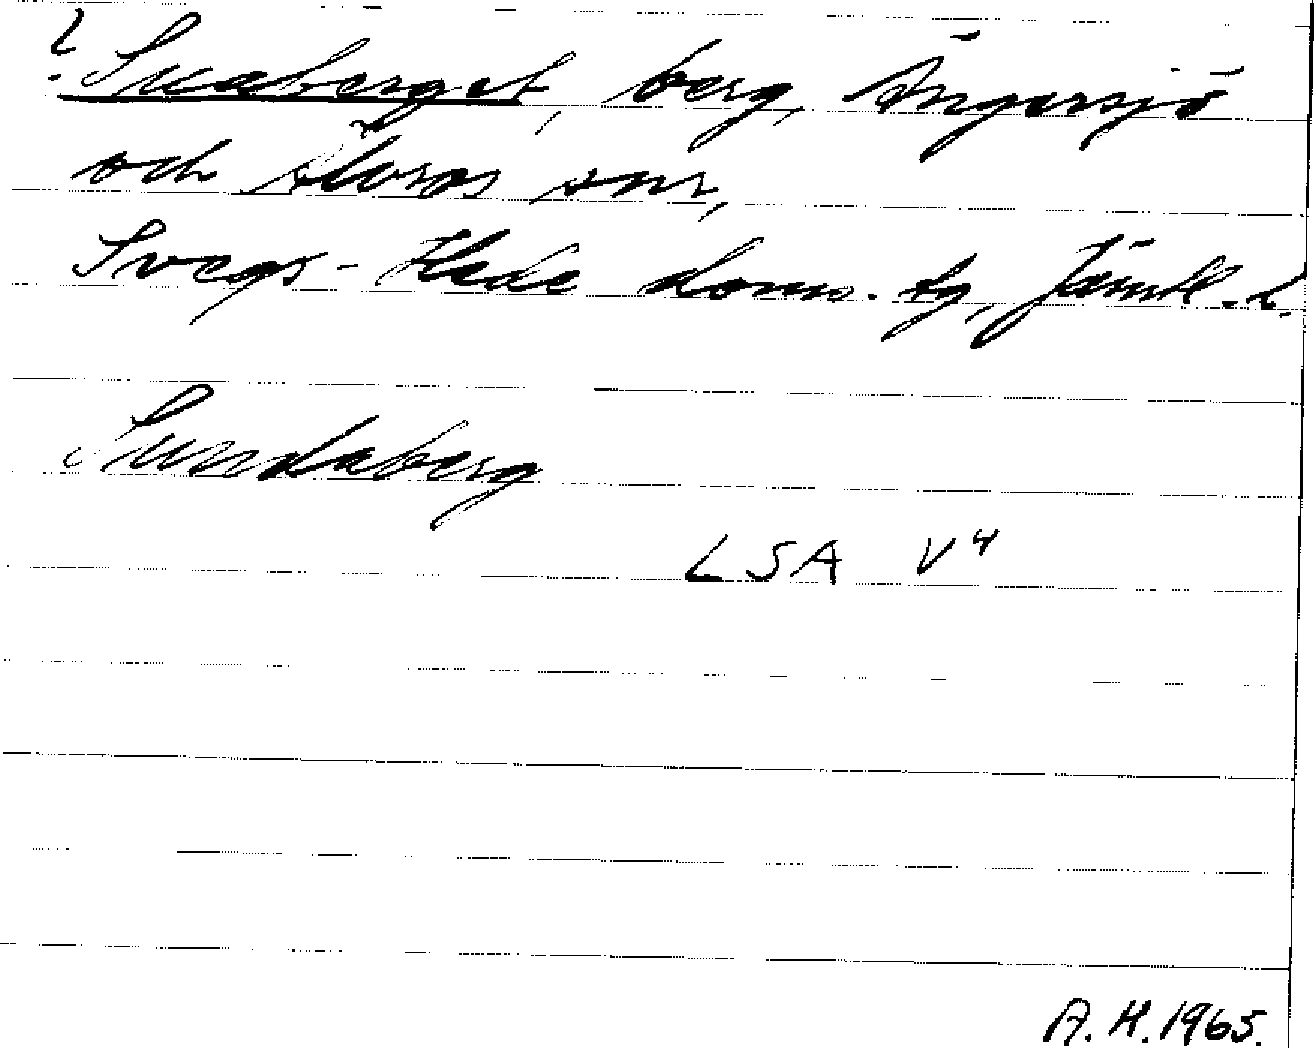 ? Snaberget, berg, Ängersjö
och Älvros snr,
Svegs-Hede doms. tg, Jämtl. l.
Sundaberg
LSA V4
A. H. 1965.